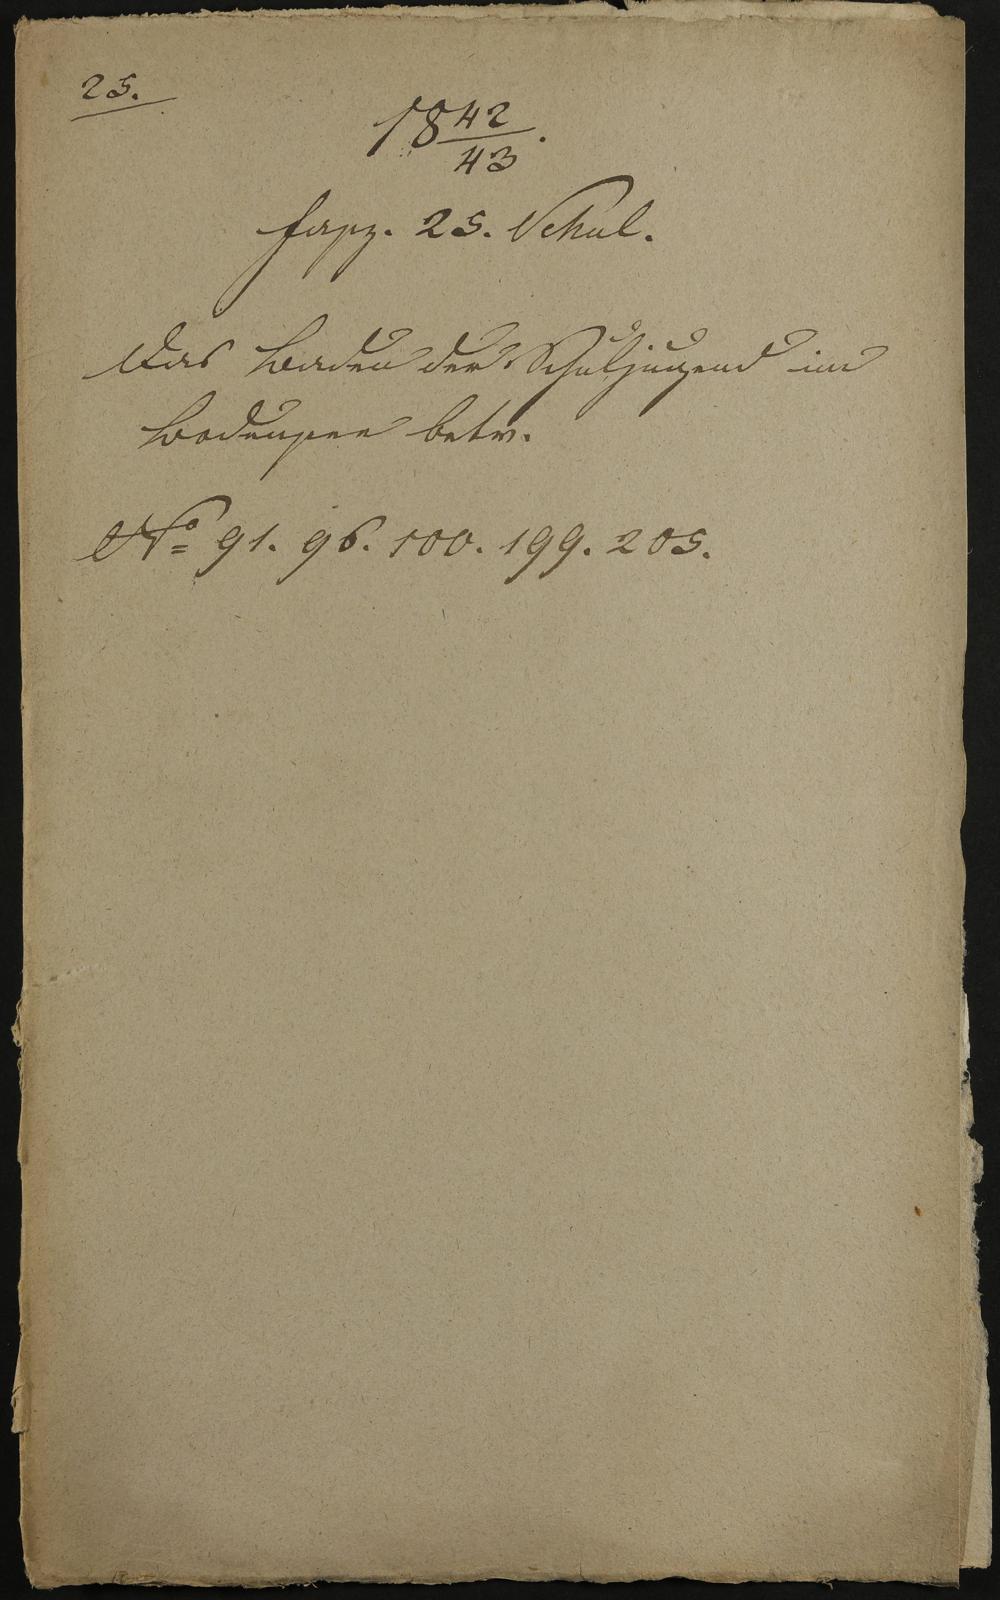 25.
18 42/43.
Fasz. 25. Schul.
Das Baden der Schuljugend im
Bodensee betr.
No 91. 96. 100. 199. 205.